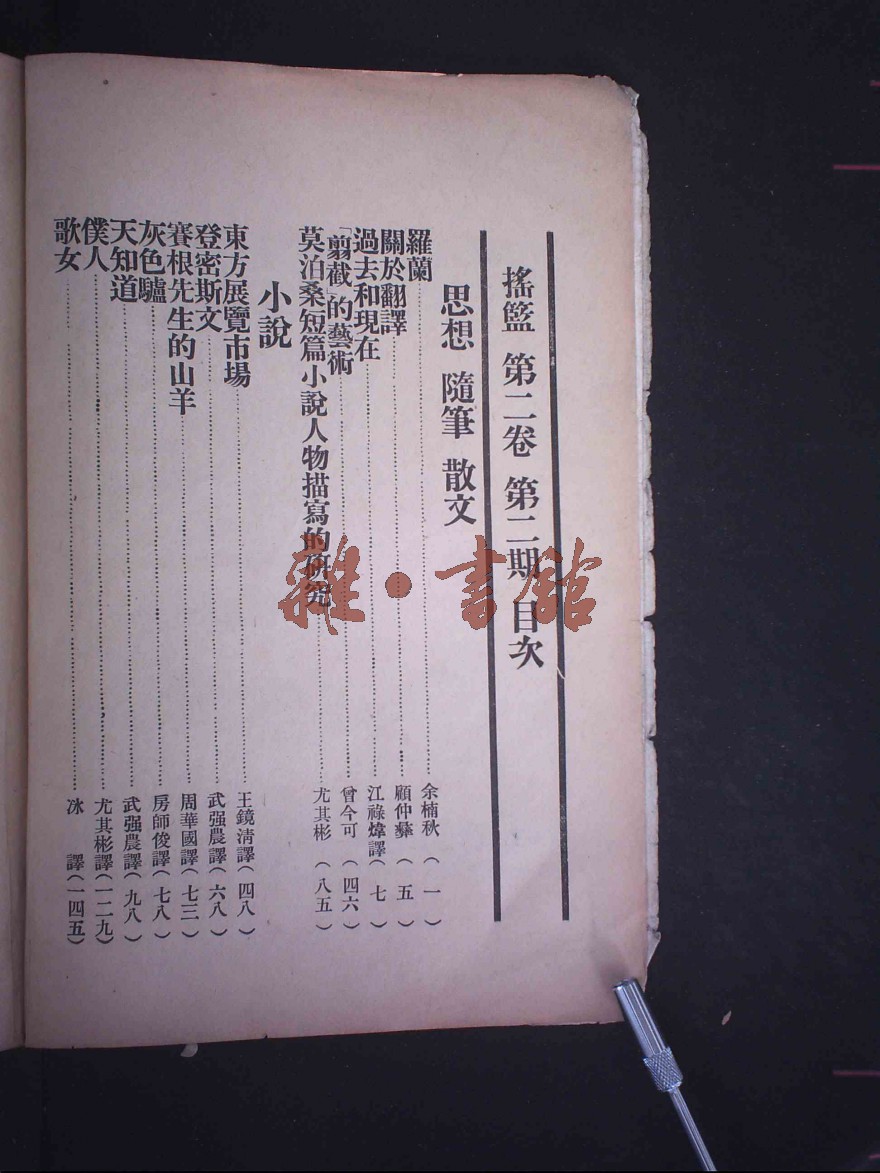 搖籃 第二卷 第二期 目次
思想 隨筆 散文
羅蘭……余楠秋(一)
關於翻譯……顧仲彝(五)
過去和現在……江祿煒譯(七)
「剪截」的藝術……曾今可(四六)
莫泊桑短篇小說人物描寫的研究……尤其彬(八五)
小說
東方展覽市場……王鏡清譯(四八)
登密斯文……武强農譯(六八)
賽根先生的山羊……周華國譯(七三)
灰色驢……房師俊譯(七八)
天知道……武强農譯(九八)
僕人……尤其彬譯(一二九)
歌女……冰 譯(一四五)
雜·書館